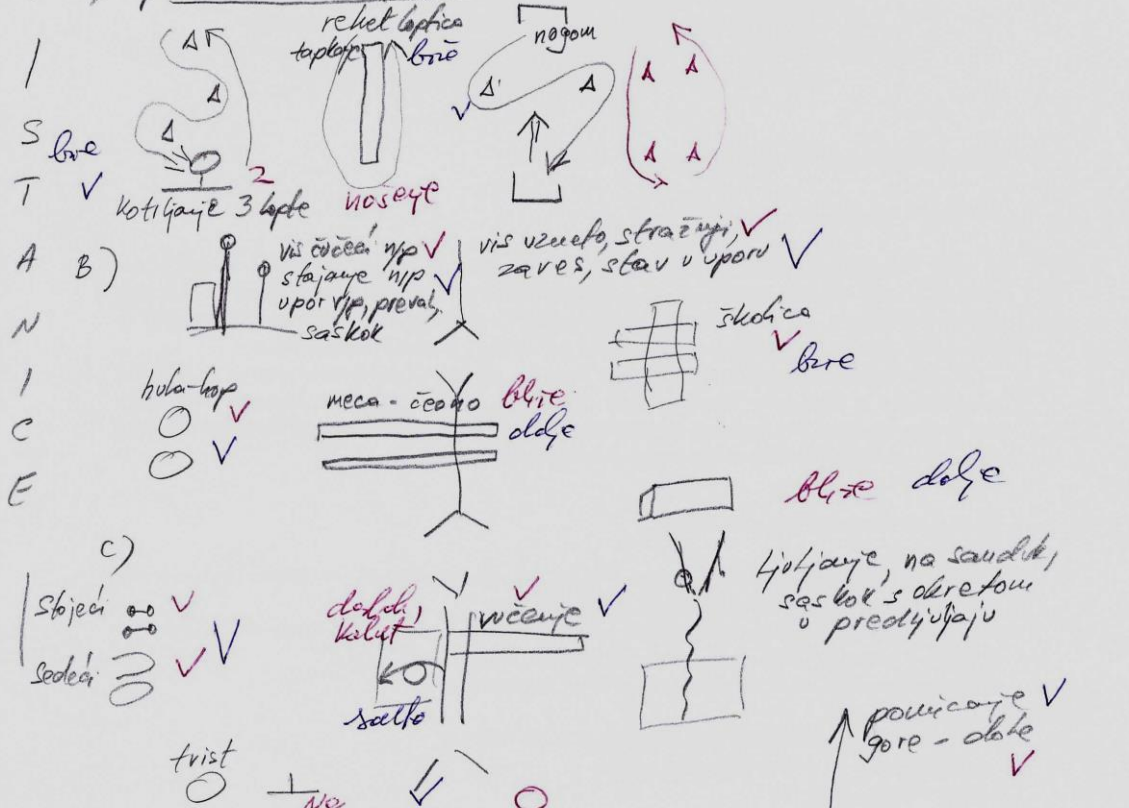 I
S
T
A
N
I
C
E
reket loptica
tapkaje
brže
nogom
brže
2
kotrljanje 3 lopte
nošenje
B)
vis čučeći n/p
stajanje n/p
upor n/p, preval,
saskok
vis uzneto, stražnji,
zaves, stav u uporu
školica
brže
hula-hop
meca - čeono
bliže
dalje
bliže dalje
C)
stojeći
sedeći
kolut
vučenje
salto
ljuljanje, na sanduk,
saskok s okretom
u predljuljaju
pomicanje
gore - dole
tvist
Na